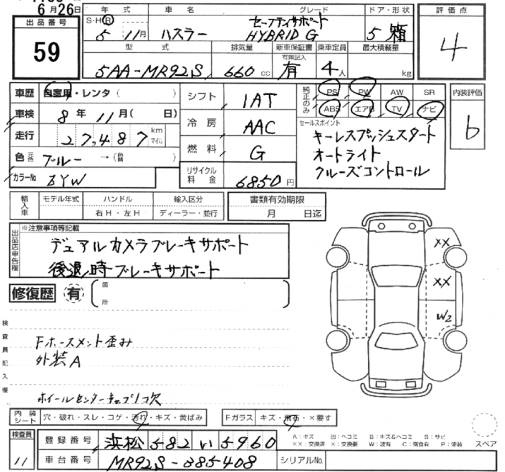 6月26日
出品番号
59
年式 車名 グレード ドア・形状
S・H・R 5年 11月 ハスラー セーフティサポート HYBRID G 5 箱
型式 排気量 新車保証書 乗車定員 最大積載量
有無記入
5AA-MR92S 660cc 有 4人 kg
評価点
4
車歴 自家用・レンタ・( )
車検 8年11月( 日)
走行 27,487 km マイル
色 元色 ブルー → ( 替色 )
カラーNo. BYW
シフト IAT
冷房 AAC
燃料 G
リサイクル料金 6850円
純正のみ PS PW AW SR
ABS エアB TV ナビ
内装評価
b
セールスポイント
キーレスプッシュスタート
オートライト
クルーズコントロール
輸入車 モデル年式 ハンドル 輸入区分
年 右H・左H ディーラー・並行
書類有効期限
月 日迄
出品店申告欄
※注意事項等記載
デュアルカメラブレーキサポート
後退時ブレーキサポート
修復歴 有 (箇所 )
検査員記入欄
Fホースメント歪み
外装A
ホイールセンターキャップ1コ欠
XX
XX
W2
内装シート 穴・破れ・スレ・コゲ・汚れ・キズ・黄ばみ
Fガラス キズ・飛石・×要す
スペア
検査員
11
登録番号 浜松582い5960
車台番号 MR92S-385408
シリアルNo.